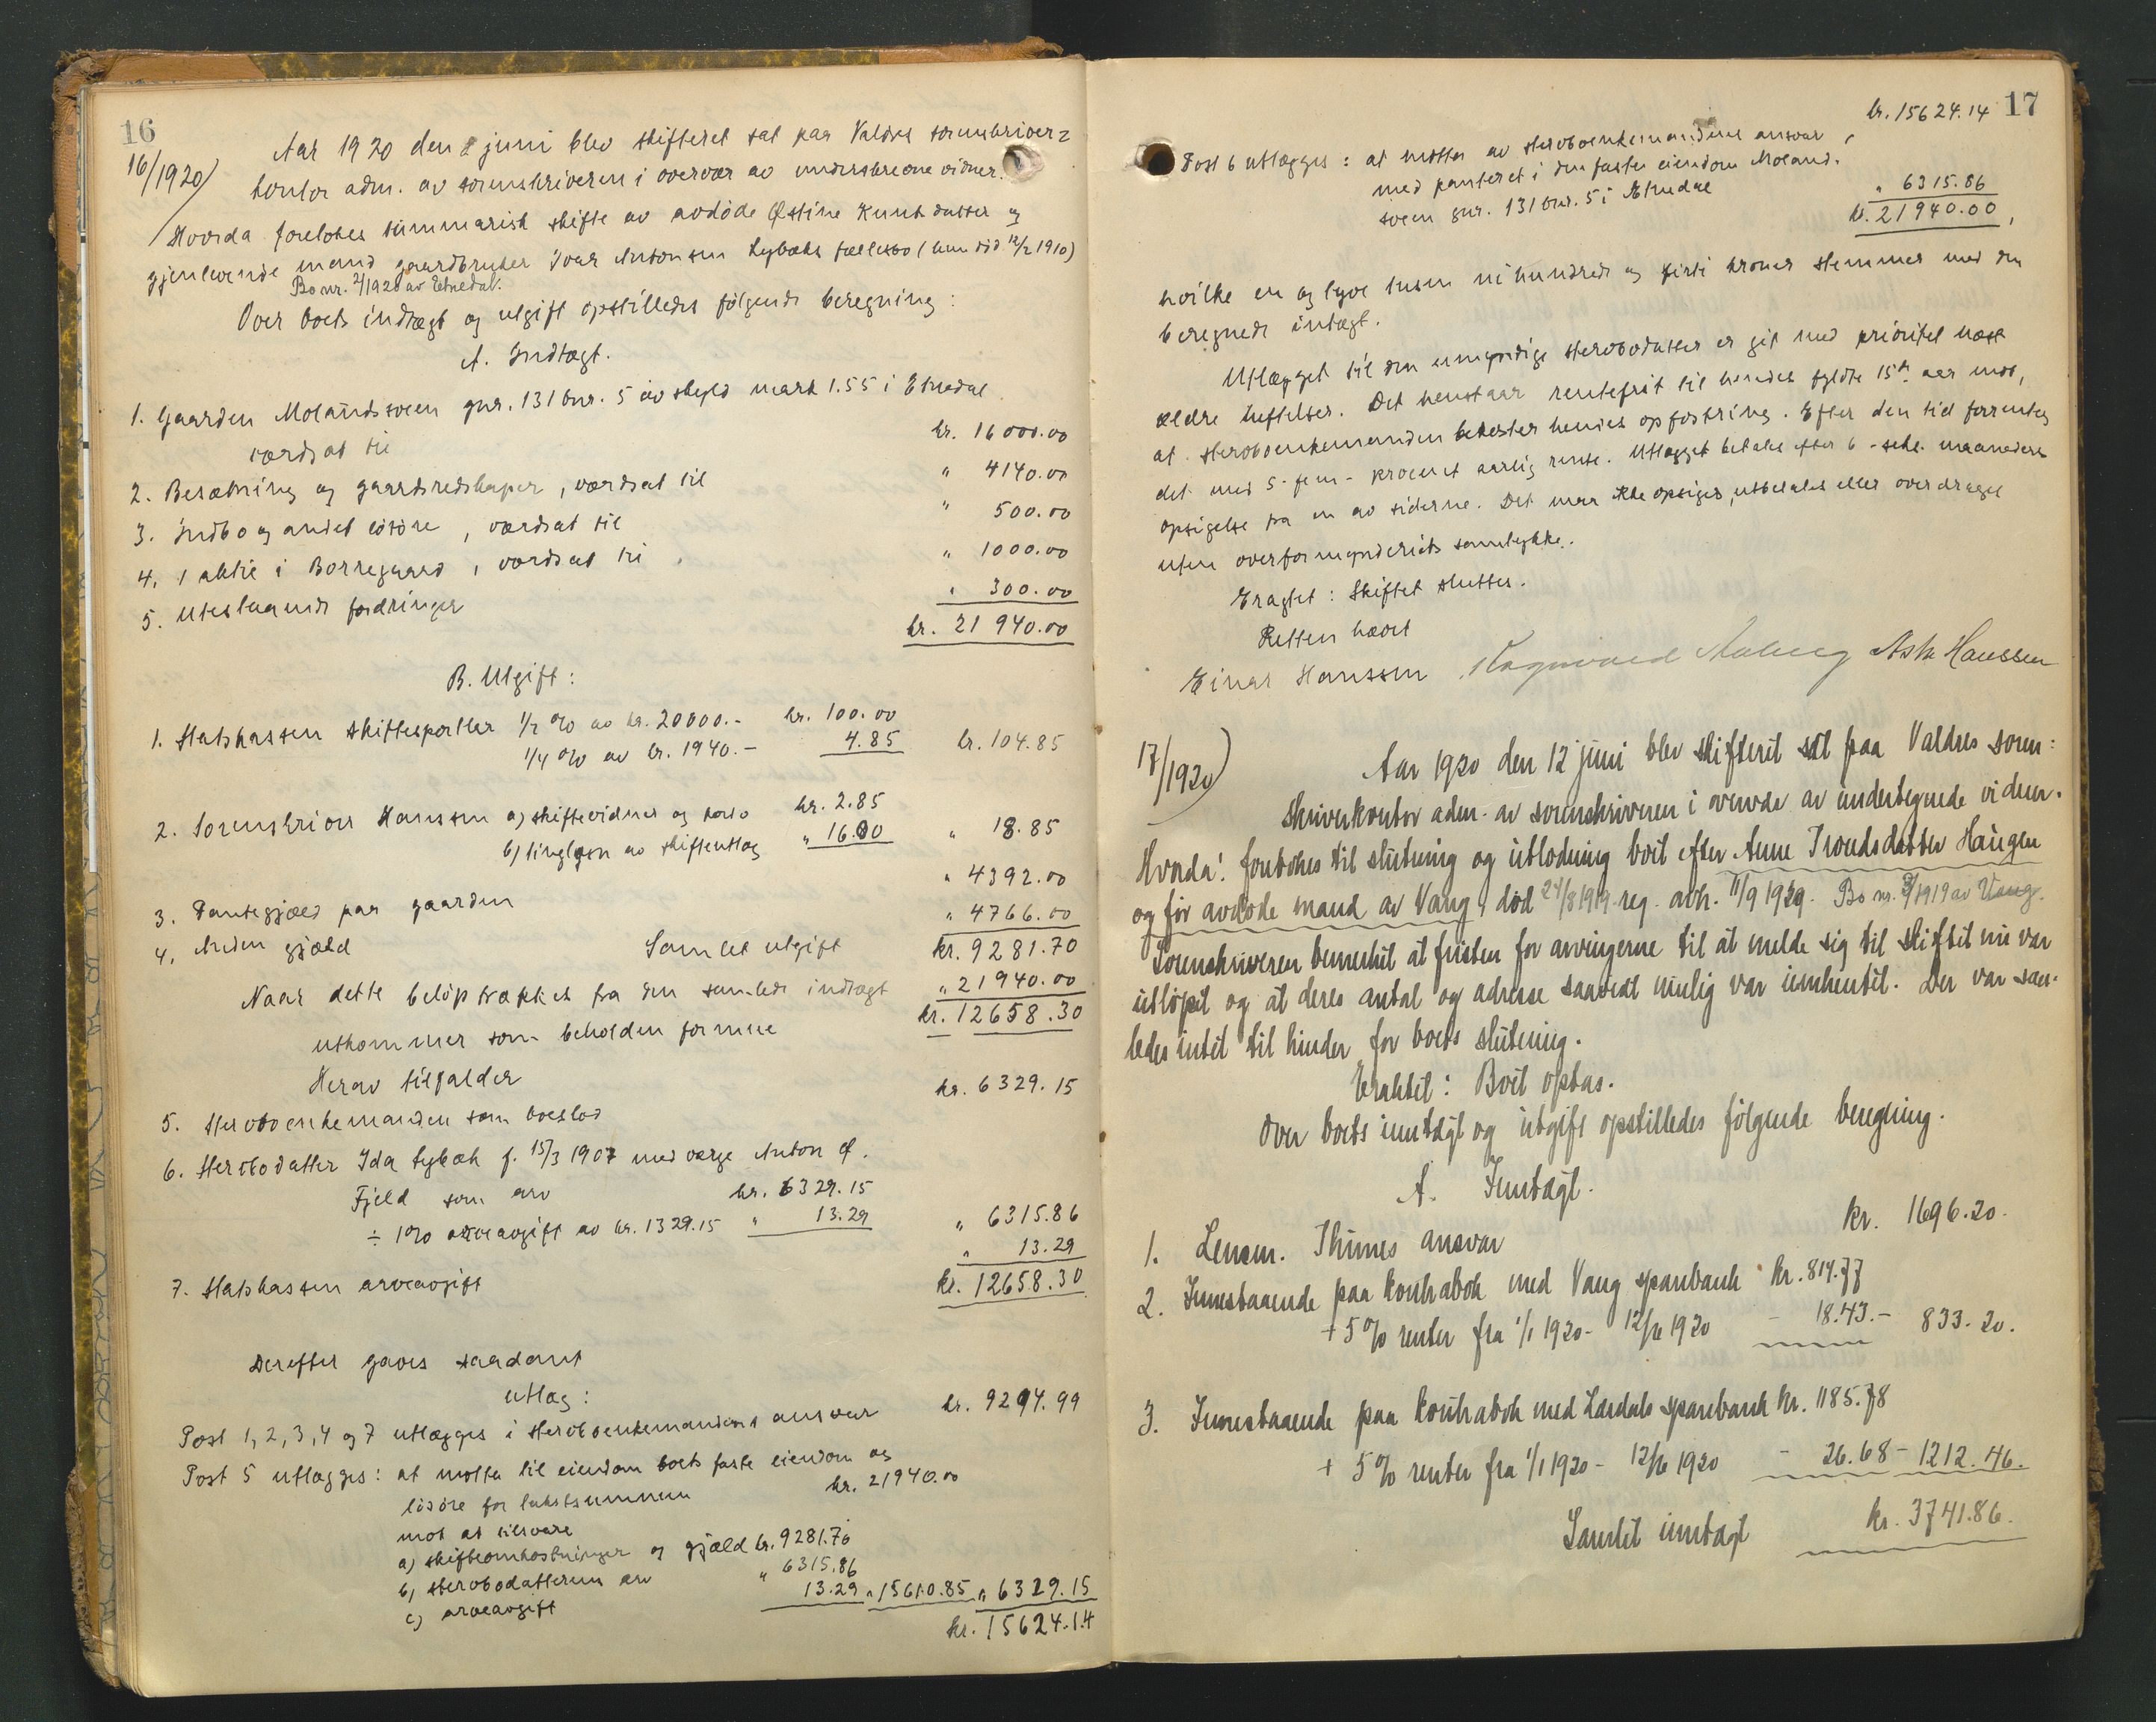 16
16/1920) Aar 1920 den juni blev skifteret sat paa Valdres sorenskriver=
kontor adm. av sorenskriveren i overvær av underskrevne vidner.
Hvorda foretokes summarisk skifte av avdöde Østine Knutsdatter og
gjenlevende mand gaardbruker Ivar Antonsen Lybæks fællesbo (hun död 12/2 1910)
Bo nr. 2/1920 av Etnedal.
Over boets indtægt og utgift opstilledes følgende beregning:
A. Indtægt.
1. Gaarden Molandsveen gnr. 131 bnr. 5 av skyld mark 1.55 i Etnedal
værdsat til kr. 16000.00
2. Besætning og gaardsredskaper, værdsat til " 4140.00
3. Indbo og andet lösöre, værdsat til " 500.00
4. 1 aktie i Borregaard, værdsat til " 1000.00
5. Utestaaende fordringer " 300.00
kr. 21940.00
B. Utgift:
1. Statskassen skiftesportler 1/2 % av kr. 20000.- kr. 100.00
1/4 % av kr. 1940.- 4.85 kr. 104.85
2. Sorenskriver Hanssen a) skiftevidner og porto kr. 2.85
b) tinglysn av skifteutlæg " 16.00 " 18.85
3. Pantegjæld paa gaarden " 4392.00
4. Anden gjæld " 4766.00
Samlet utgift kr. 9281.70
Naar dette belöp trækkes fra den samlede indtægt " 21940.00
utkommer som beholden formue kr. 12658.30
Herav tilfalder
5. Stervboenkemanden som boeslod kr. 6329.15
6. Stervbodatter Ida Lybæk f. 15/3 1907 med verge Anton Ø.
Fjeld som arv kr. 6329.15
÷ 1% arveavgift av kr. 1329.15 " 13.29 " 6315.86
7. Statskassen arveavgift " 13.29
kr. 12658.30
Derefter gaves saadant
utlæg:
Post 1, 2, 3, 4 og 7 utlægges i stervboenkemandens ansvar kr. 9294.99
Post 5 utlægges: at motta til eiendom boets faste eiendom og
lösöre for takstsummen kr. 21940.00
mot at tilsvare
a) skifteomkostninger og gjæld kr. 9281.70
b) stervbodatterens arv " 6315.86
c) arveavgift 13.29 " 15610.85 " 6329.15
kr. 15624.14
17
kr. 15624.14
Post 6 utlægges: at motta av stervboenkemandens ansvar
med panteret i den faste eiendom Moland.
sveen gnr. 131 bnr. 5 i Etnedal " 6315.86
kr. 21940.00,
hvilke en og tyve tusen nihundrede og firti kroner stemmer med den
beregnede indtægt.
Utlægget til den umyndige stervbodatter er git med prioritet næst
ældre heftelser. Det henstaar rentefrit til hendes fyldte 15de aar mot,
at stervboenkemanden bekoster hendes opfostring. Efter den tid forrentes
det med 5 - fem - procent aarlig rente. Utlægget betales efter 6 - seks maaneders
opsigelse fra en av siderne. Det maa ikke opsiges, utbetales eller overdrages
uten overformynderiets samtykke.
Eragtet: Skiftet sluttes.
Retten hævet
Einar Hanssen Ragnvald Ask Hanssen
17/1920) Aar 1920 den 12 juni blev skifteret sat paa Valdres soren:
skriverkontor adm. av sorenskriveren i overvær av undertegnede vidner.
Hvorda! foretokes til slutning og utlodning boet efter Anne Trondsdatter Haugen
og för avdöde mand av Vang, död 24/8 1919 reg. avh. 11/9 1929. Bo nr. 9/1919 av Vang.
Sorenskriveren bemerket at fristen for arvingerne til at melde sig til skiftet nu var
utlöpet og at deres antal og adresse saavidt mulig var inhentet. Der var saa-
ledes intet til hinder for boets slutning.
Eraktet: Boet optas.
Over boets inntægt og utgift opstilledes följende beregning.
A. Inntægt.
1. Lensm. Thunes ansvar kr. 1696.20.
2. Innestaaende paa kontrabok med Vang sparebank kr. 814.77
+ 5% renter fra 1/1 1920 - 12/6 1920 - 18.43.- 833.20.
3. Innestaaende paa kontrabok med Lærdals sparebank kr. 1185.78
+ 5% renter fra 1/1 1920 - 12/6 1920 - 26.68 - 1212.46.
Samlet inntægt kr. 3741.86.